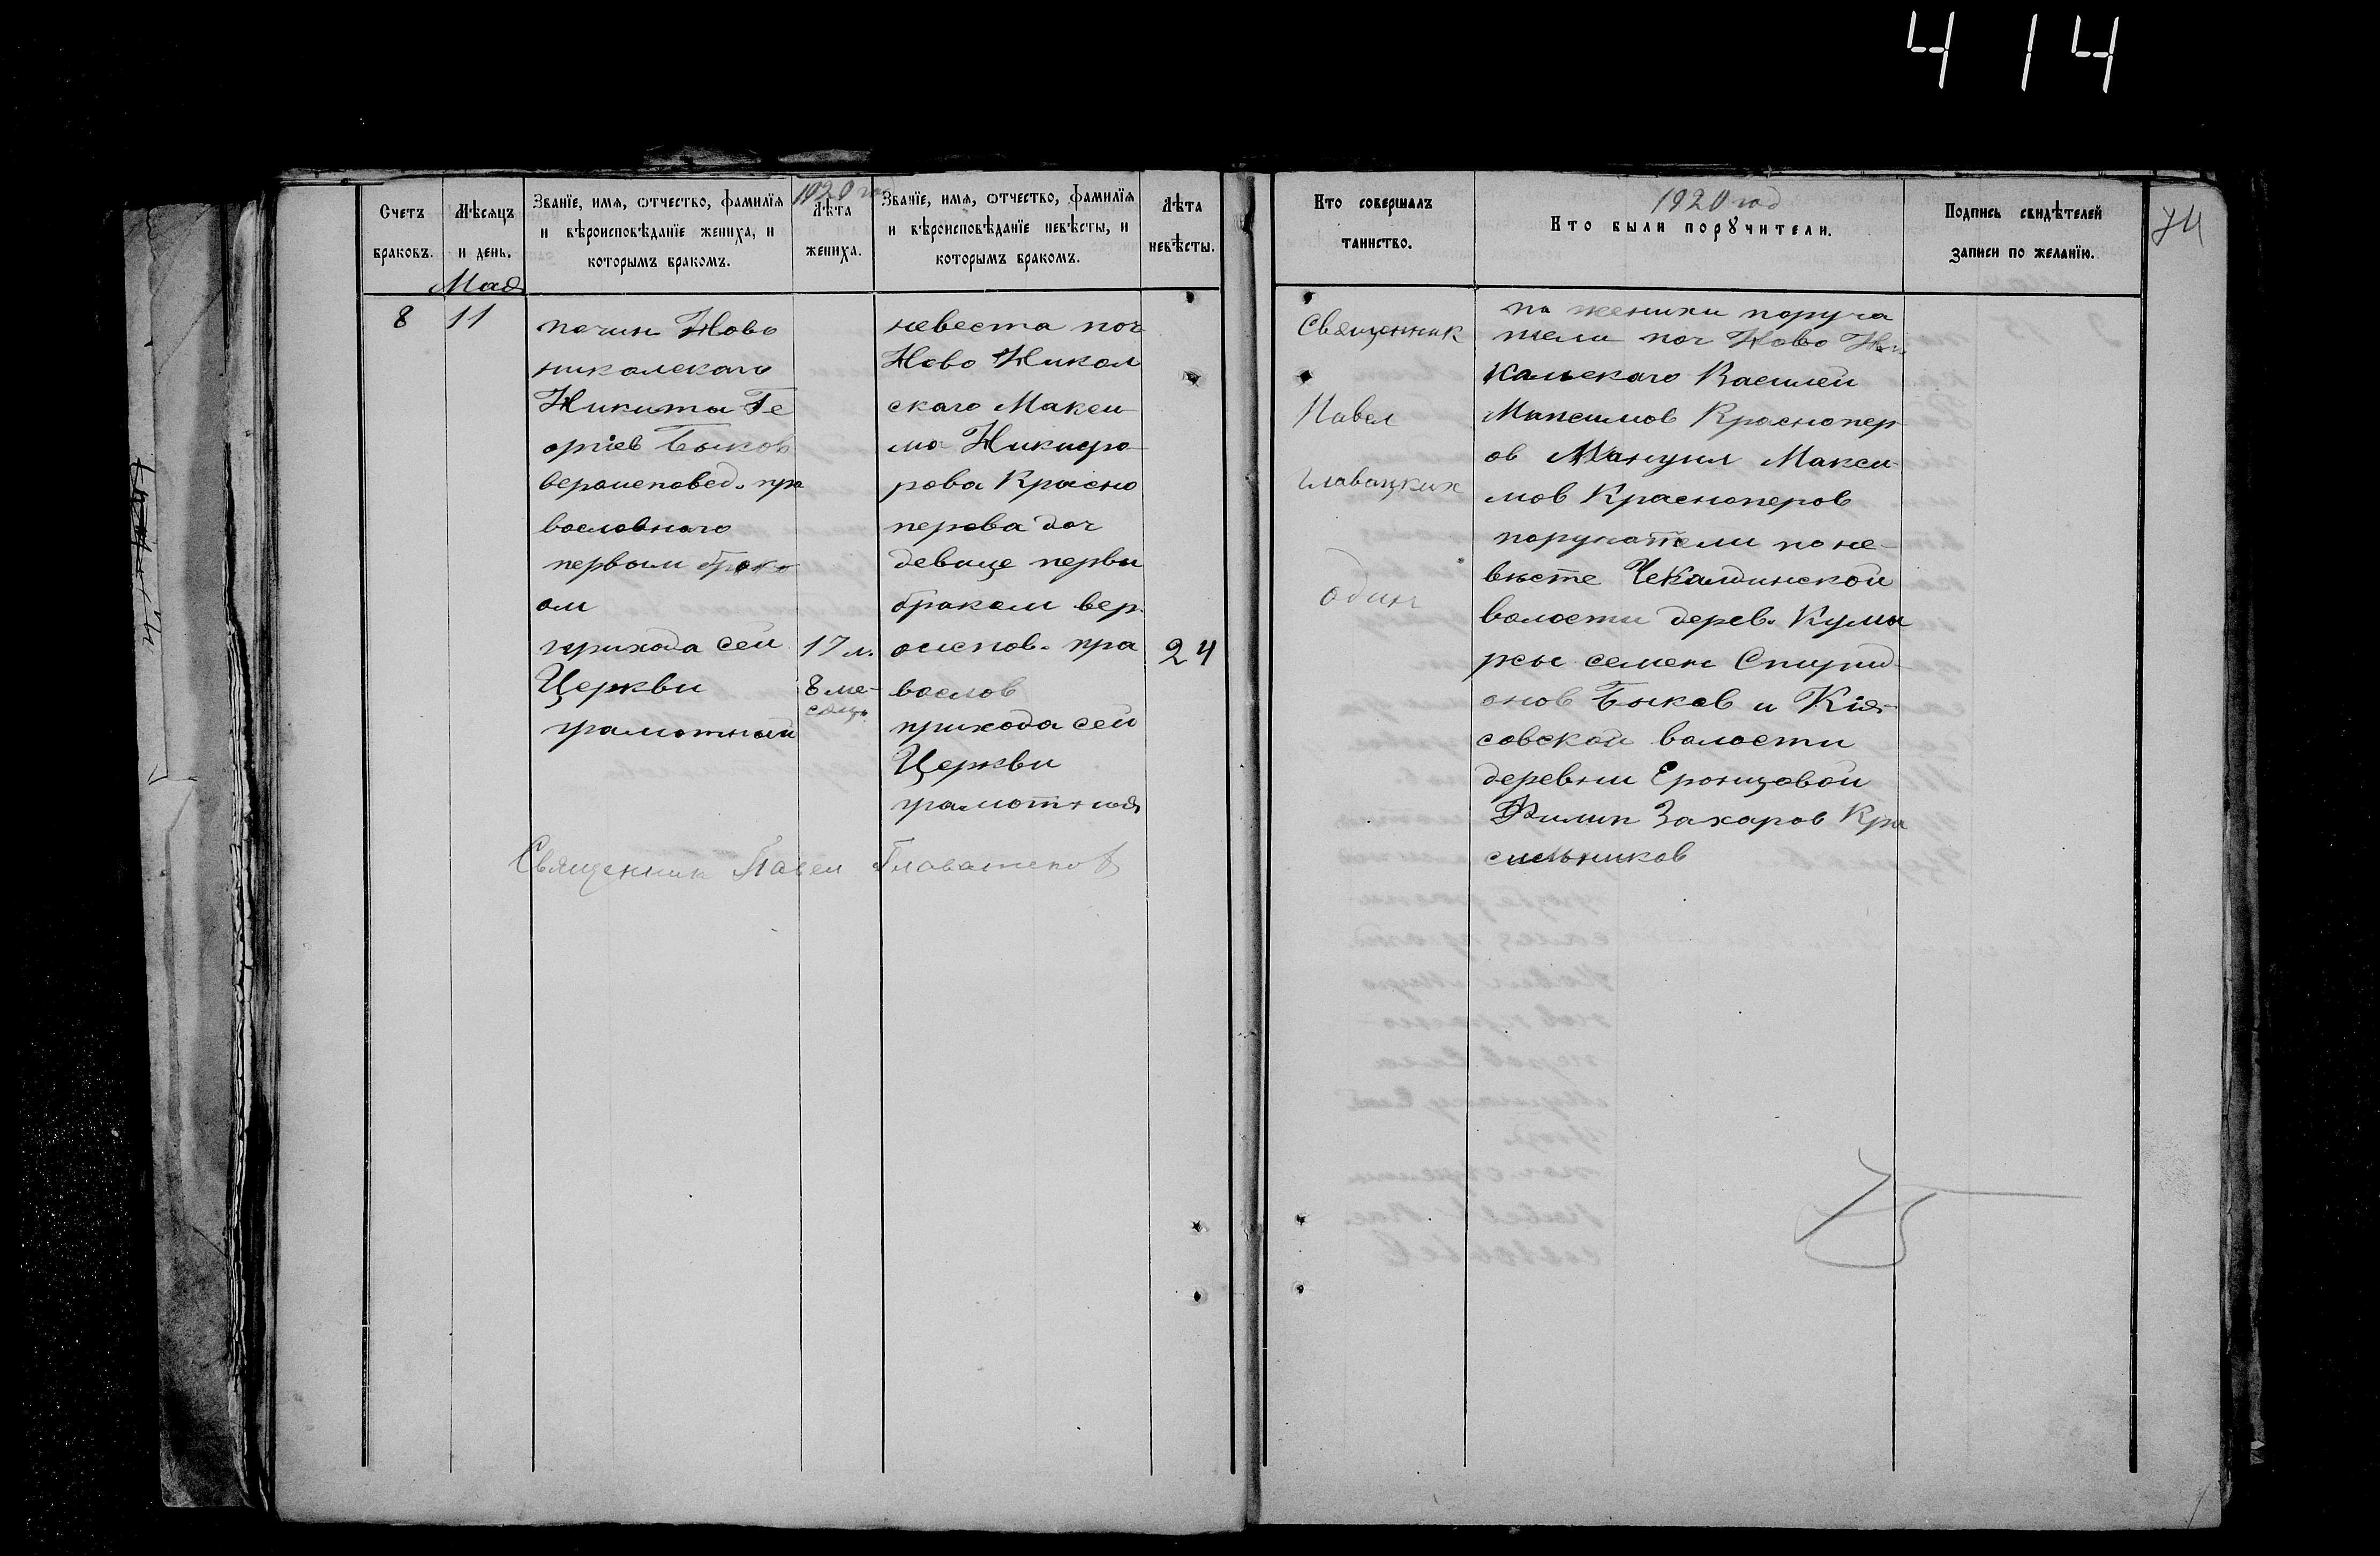 4 14
1920 год
Счетъ
браковъ.
Мѣсяцъ
и день.
Званїе, имя, ѿтчество, фамилїя
и вѣроисповѣданїе жениха, и
которымъ бракомъ.
Лѣта
жениха.
Званїе, имя, ѿтчество, фамилїя
и вѣроисповѣданїе невѣсты, и
которымъ бракомъ.
Лѣта
невѣсты.
Мая
8
11
почин Ново
николскаго
Никита Ге
оргіев Быков
вероисповед. пра
вославнаго
первым брак
ом
прихода сей
Церкви
грамотный
17 л.
8 ме-
сяц.
невеста поч
Ново Никол
скаго Макси
ма Никифо-
рова Красно
перова доч
девице первы
браком вер.
оиспов. пра
вослов
прихода сей
Церкви
грамотная
24
Священник Павел Главатских
Кто совершалъ
таинство.
1920 год
Кто были порꙋчители.
Подпись свидѣтелей
записи по желанїю.
74
Священник
Павел
Главацких
один
по женихи поруча
тели поч Ново Ни
кольскаго Василей
Максимов Красnопер
ов Мануил Макси-
мов Красноперов
поручатели по не-
вѣсте Чекалдинской
волости дерев. Кумы
рсы семен Спирид-
онов Быков и Кія-
совской волости
деревни Еронцовой
Филип Захаров Кра
сильников
75